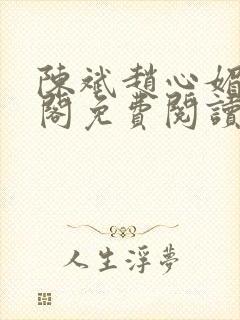 陳斌趙心媚
閣免費閱讀
人生浮夢